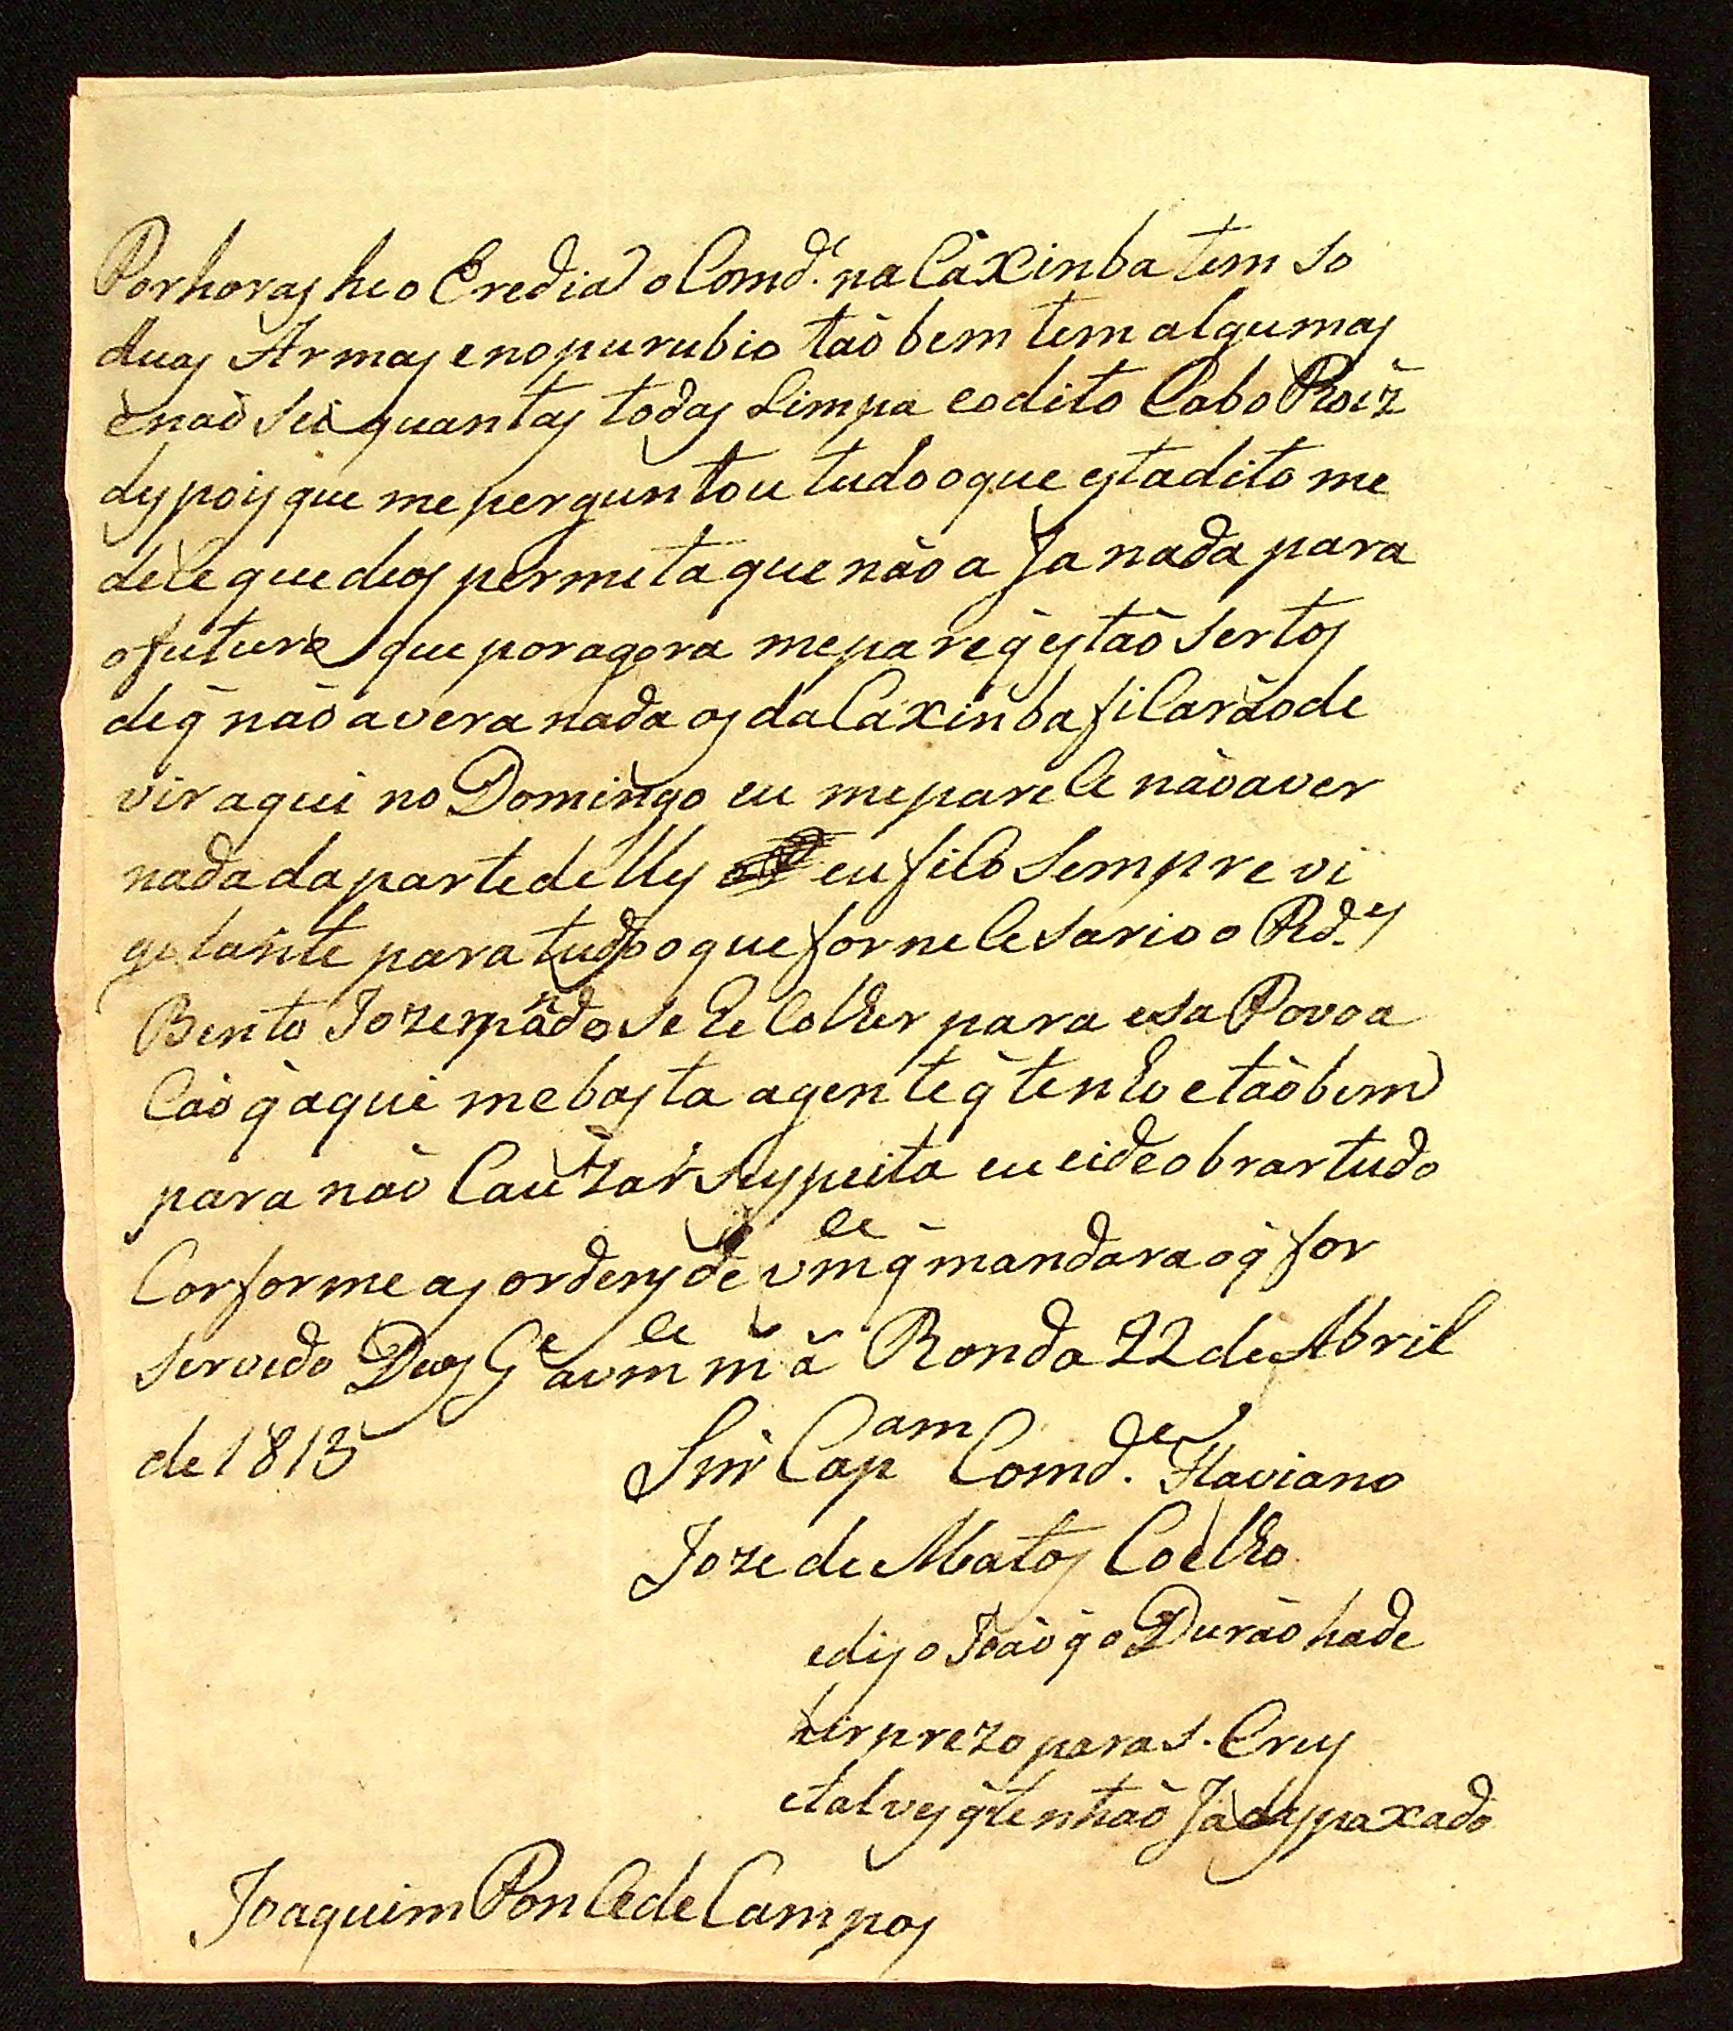 Por horas he o Eredia o Comd.e na Caxinba tem so
duas Armas e no purubio taõ bem tem algumas
e naõ sei quantas todas Limpa e o dito Cabo Roiz
dis pois que me perguntou tudo o que esta dito me
dice que deos permita que não a Ja nada para
o futuro que por agora me pare q̃ estaõ sertos
de q̃ não avera nada os da Caxinba ficarão de
vir aqui no Domingo eu me parece não aver
nada da parte delles eu fico sempre vi
gelante para tudo o que for necesario o Rd.es
Bento Joze mando se Recolher para esa Povoa
caõ q̃ aqui me basta a gente q̃ tenho e taõ bem
para naõ Cauzar suspeita eu eide obrar tudo
Corforme as ordens de vm.ce q̃ mandara o q̃ for
servido Deos G.e a vm.ce m.ã Ronda 22 de Abril
de 1813
Snr Cap.am Comd.e Flaviano
Joze de Matos Coelho
e dis o Joaõ q̃ o Durão hade
hir prezo para S. Crus
e talves q̃ tenhaõ Ja despaxado
Joaquim Ponce de Campos